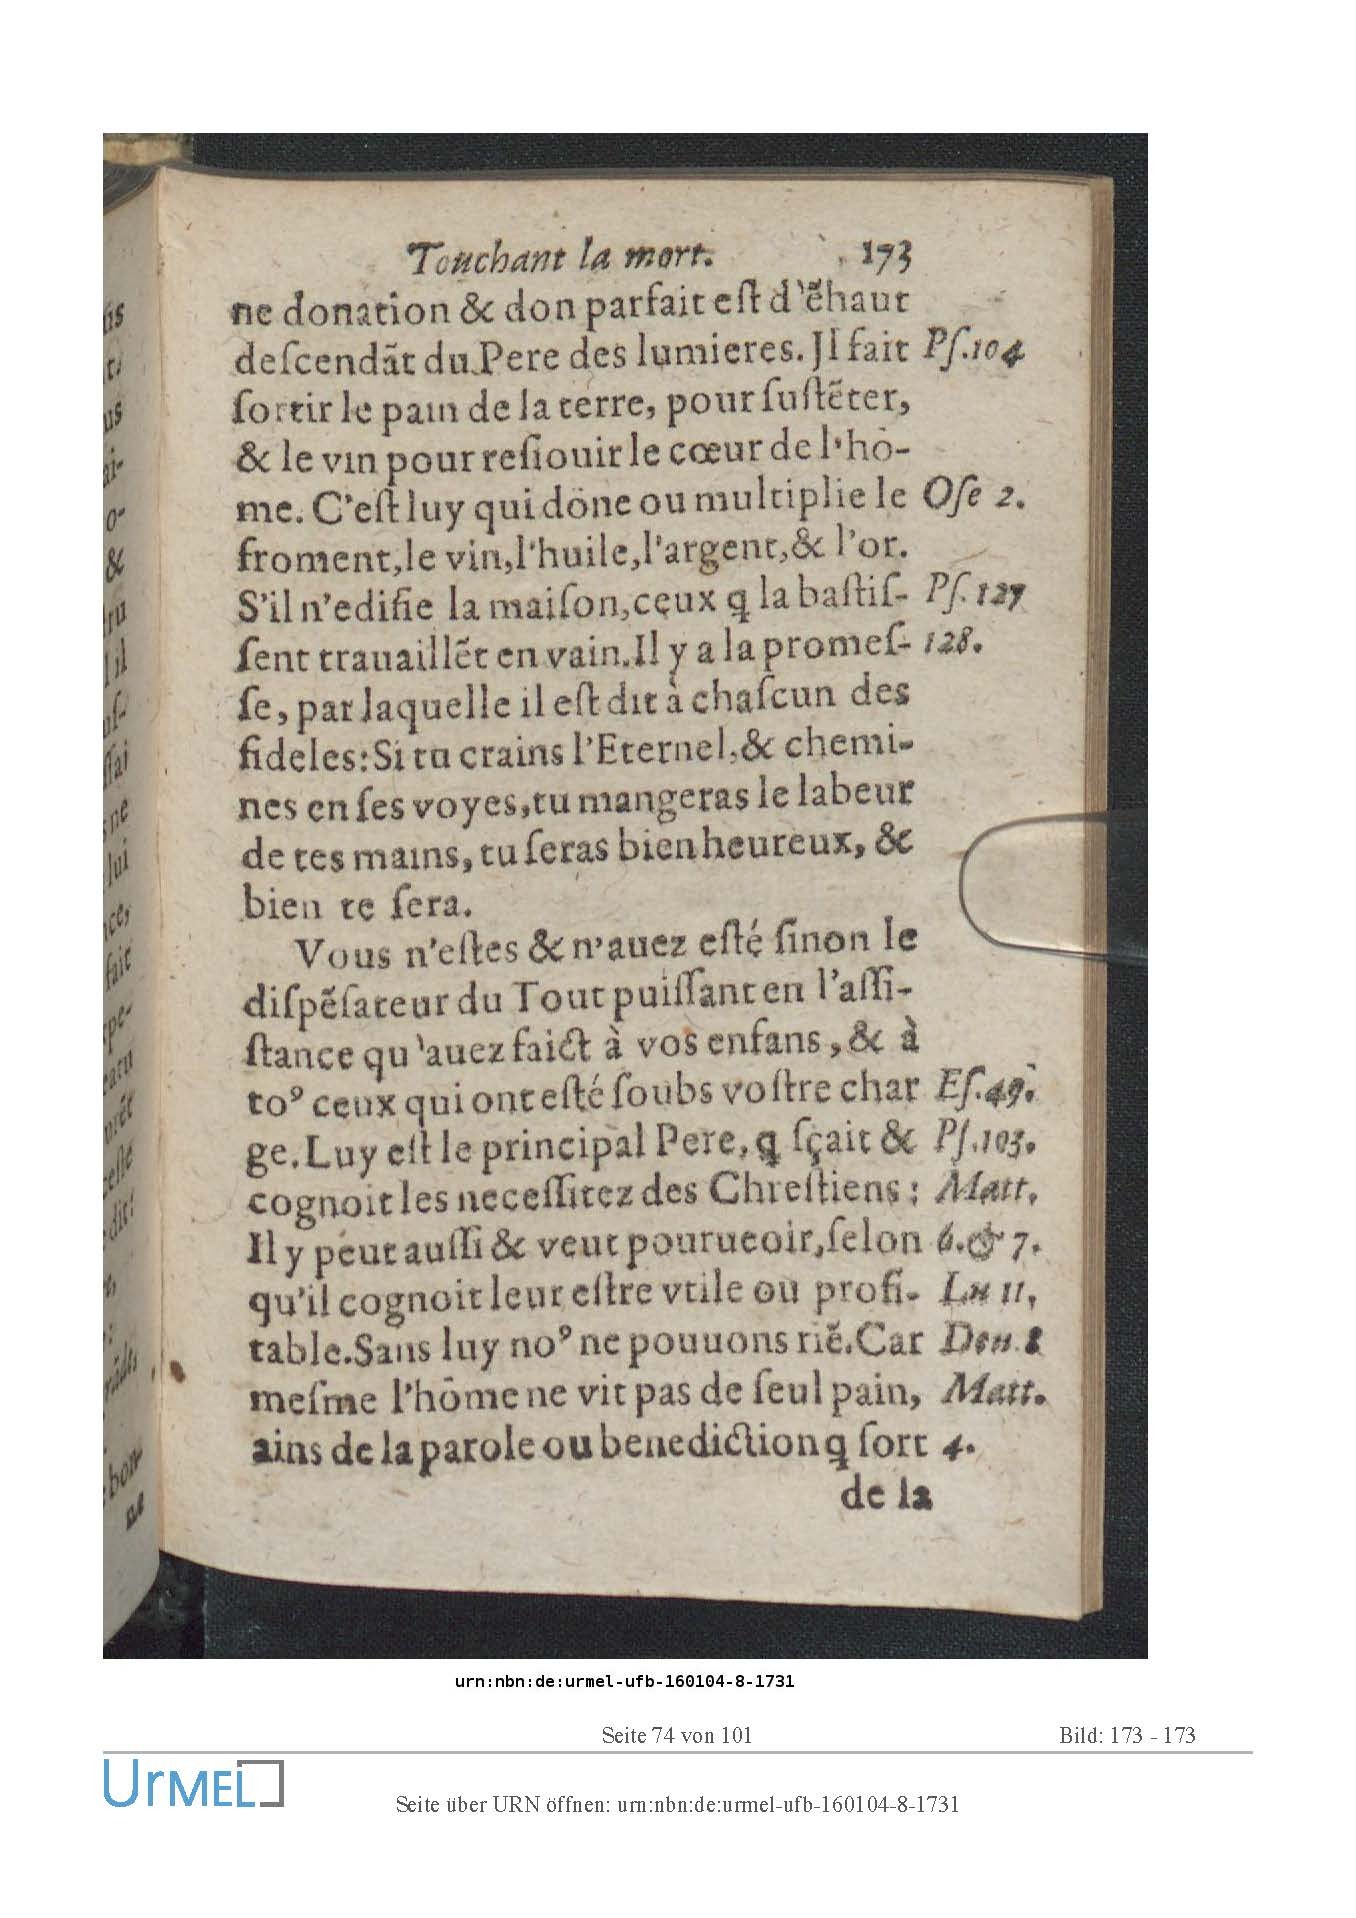 Touchant la mort. 173
ne donation & don parfait eſt d'ẽhaut
deſcendãt du Pere des lumieres. Il fait Pſ.104
ſortir le pain de la terre, pour ſuſtẽter,
& le vin pour reſiouir le cœur de l'hõ-
me. C'eſt luy qui dõne ou multiplie le Oſe 2.
froment, le vin, l'huile, l'argent, & l'or.
S'il n'edifie la maiſon, ceux q̃ la baſtiſ- Pſ.127
ſent trauaillẽt en vain. Il y a la promeſ- 128.
ſe, par laquelle il eſt dit à chaſcun des
fideles: Si tu crains l'Eternel, & chemi-
nes en ſes voyes, tu mangeras le labeur
de tes mains, tu ſeras bien heureux, &
bien te ſera.
Vous n'eſtes & n'auez eſté ſinon le
diſpẽſateur du Tout puiſſant en l'aſſi-
ſtance qu'auez faict à vos enfans, & à
toꝰ ceux qui ont eſté ſoubs voſtre char Eſ.49.
ge. Luy eſt le principal Pere, q ſçait & Pſ.103.
cognoit les neceſſitez des Chreſtiens: Matt.
Il y peut auſſi & veut pourueoir, ſelon 6.& 7.
qu'il cognoit leur eſtre vtile ou profi- Lu 11,
table. Sans luy noꝰ ne pouuons riẽ. Car Deu 8
meſme l'hõme ne vit pas de ſeul pain, Matt.
ains de la parole ou benediction q ſort 4.
de la
urn:nbn:de:urmel-ufb-160104-8-1731
Seite 74 von 101 Bild: 173 - 173
UrMEL
Seite über URN öffnen: urn:nbn:de:urmel-ufb-160104-8-1731